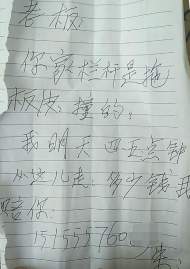 老板:
你家栏杆是拖
板皮撞的,
我明天四五点钟
从这儿走.多少钱我
赔你:
151555760
朱